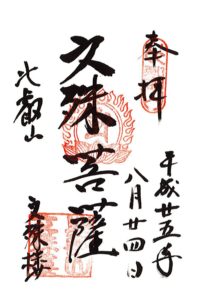 奉拝
平成廿五年
八月廿四日
文殊菩薩
比叡山
文殊楼